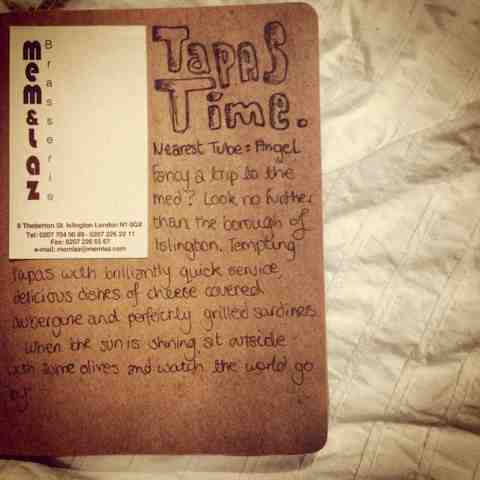 MEM & LAZ
Brasserie
8 Theberton St. Islington London N1 0QX
Tel: 0207 704 90 89 - 0207 226 22 11
Fax: 0207 226 55 67
e-mail: memlaz@memlaz.com
Tapas
Time.
Nearest Tube = Angel
Fancy a trip to the
med? Look no further
than the borough of
Islington. Tempting
tapas with brilliantly quick service,
delicious dishes of cheese covered
aubergine and perfectly grilled sardines.
When the sun is shining sit outside
with some olives and watch the world go
by.